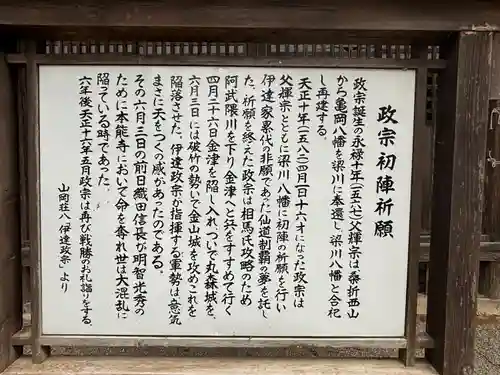 政宗初陣祈願
政宗誕生の永禄十年(一五六七)父輝宗は桑折西山
から亀岡八幡を梁川に奉還し、梁川八幡と合祀
し再建する。
天正十年(一五八二)四月一日十六才になった政宗は
父輝宗とともに梁川八幡に初陣の祈願を行い
伊達家累代の非願であった仙道制覇の夢を託し
た。祈願を終えた政宗は相馬氏攻略のため
阿武隈川を下り金津へと兵をすすめて行く
四月二十六日金津を陥し入れ、ついで丸森城を、
六月三日には破竹の勢いで金山城を攻めこれを
陥落させた。伊達政宗が指揮する軍勢は意気
まさに天をつくの感があったのである。
その六月三日の前日織田信長が明智光秀の
ために本能寺において命を奪れ世は大混乱に
陥っている時であった。
六年後天正十六年五月政宗は再び戦勝のお礼詣りをする。
山岡荘八「伊達政宗」より